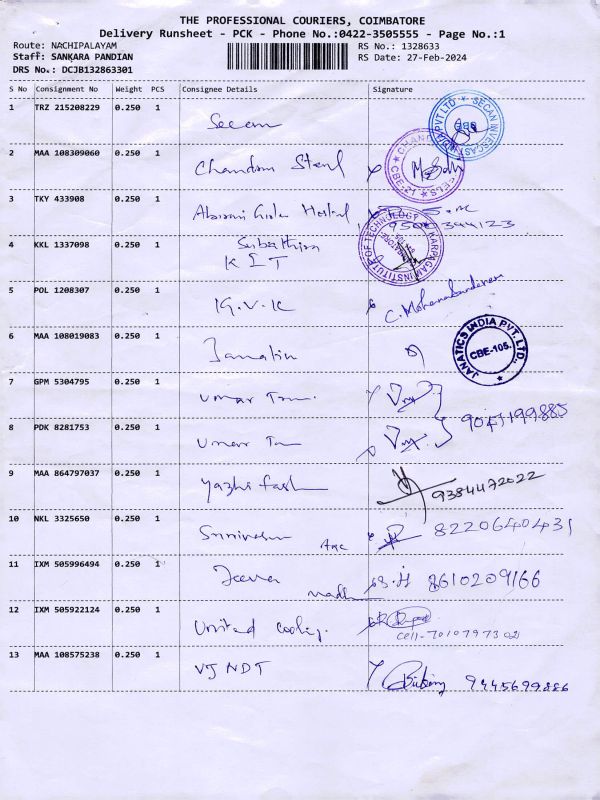 THE PROFESSIONAL COURIERS, COIMBATORE
Delivery Runsheet - PCK - Phone No.:0422-3505555 - Page No.:1
Route: NACHIPALAYAM RS No.: 1328633
Staff: SANKARA PANDIAN RS Date: 27-Feb-2024
DRS No.: DCJB132863301
S No Consignment No Weight PCS Consignee Details Signature
1 TRZ 215208229 0.250 1 Secan
SECAN INVESCAST INDIA PVT LTD
2 MAA 108309060 0.250 1 Steel
CBE-21
3 TKY 433908 0.250 1
4 KKL 1337098 0.250 1 KIT
KARPAGAM INSTITUTE OF TECHNOLOGY
5 POL 1208307 0.250 1 K.V.K C. Mohanasundaram
6 MAA 108019083 0.250 1
JANATICS INDIA PVT. LTD.,
CBE-105.
7 GPM 5304795 0.250 1 Umar
8 PDK 8281753 0.250 1 Umar
9 MAA 864797037 0.250 1 9384472022
10 NKL 3325650 0.250 1 8220640431
11 IXM 505996494 0.250 1 Jeeva 8610209166
12 IXM 505922124 0.250 1 United
cell-7010797302
13 MAA 108575238 0.250 1 VJ NDT 9445699886